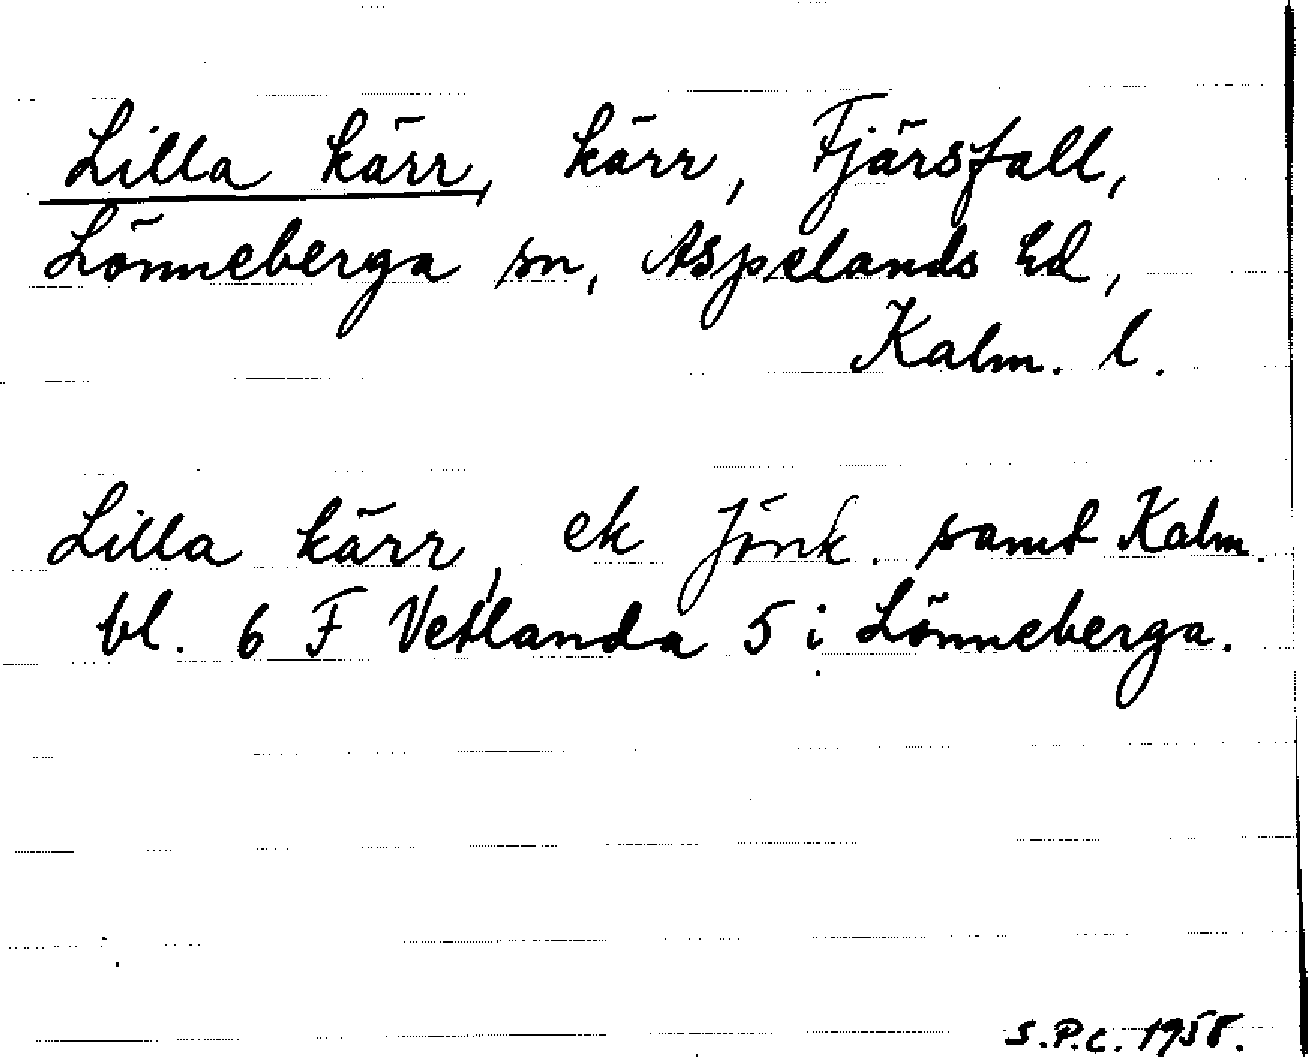 Lilla kärr, kärr, Fjärsfall,
Lönneberga sn, Aspelands hd,
Kalm. l.
Lilla kärr, ek Jönk. samt Kalm.
bl. 6 F Vetlanda 5 i Lönneberga.
S.P.C. 1958.